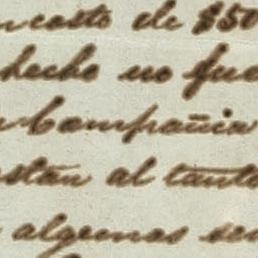 costo de $50
hecho no fue
Compañia
estan al tanto
algunos